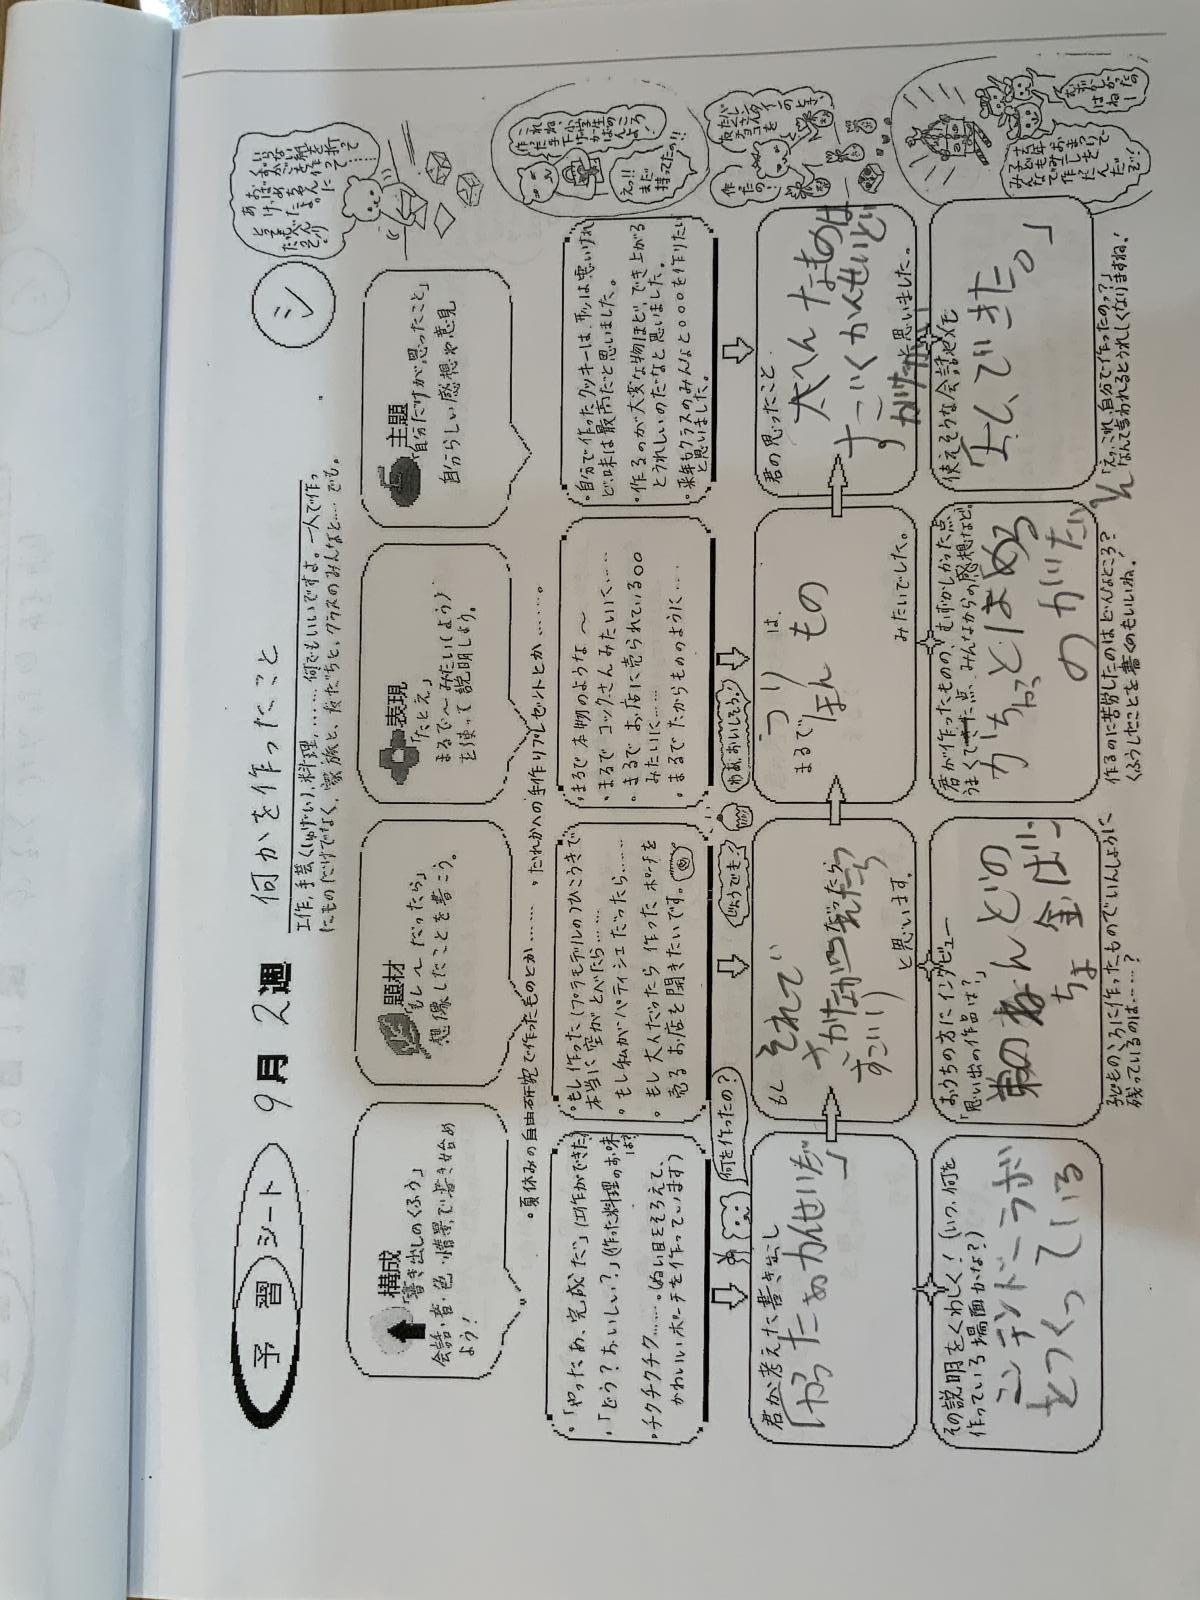 予習シート
9月2週
何かを作ったこと
シ
工作、手芸(しゅげい)、料理、……何でもいいですよ。一人で作っ
たものだけでなく、家族と、友だちと、クラスのみんなと……でも。
構成
「書き出しのくふう」
会話・音・色・情景で書き始め
よう!
題材
「もし~だったら」
想像したことを書こう。
表現
「たとえ」
まるで~みたい(よう)
を使って説明しよう。
主題
「自分だけが思ったこと」
自分らしい感想や意見
・夏休みの自由研究で作ったものとか………・だれかへの手作りプレゼントとか……。
・「やったあ、完成だ」(工作ができた)
・「どう?おいしい?」(作った料理のお味は?)
・チクチクチク……。(ぬい目をそろえて、
かわいいポーチを作っています)
・もし作った(プラモデルの)ひこうきで
本当に空がとべたら……
・もし私がパティシエだったら……
・もし大人だったら作ったポーチを
売るお店を開きたいです。
・まるで本物のような~
・まるでコックさんみたいに……
・まるでお店に売られている○○
みたいに……
・まるでたからもののように……
・自分で作ったクッキーは、形は悪いけれ
ど、味は最高だと思いました。
・作るのが大変な物ほど、でき上がる
とうれしいのだなと思いました。
・来年もクラスのみんなと○○○を作りたい
と思いました。
何を作ったの?
じょうでも?
わあ、おいしそう!
君が考えた書き出し
「やったあカんせいだ」
もし
それで
さかなが
だったら
すごい
と思います。
つり
は、
まるで
ほんもの
みたいでした。
君の思ったこと
大へんなものは
すごくかんせいど
と思いました。
その説明をくわしく!(いつ、何を
作っている場面かな?)
ニンテンドーラボ
をつくっている
おうちの方にインタビュー
「思い出の作品は?」
ねんどの
ちょ金ばこ
子どものころに作ったものでいんしょうに
残っているのは……?
君が作ったものの、むずかしかった点、
うまくできた点、みんなからの感想など。
かちっとはめる
のがたいへん
作るのに苦労したのはどんなところ?
くふうしたことを書くのもいいね。
使えそうな会話やメモ
でできた。」
「えっ、これ、自分で作ったのっ?」
なんて言われるとうれしくなりますね!
えっ!!
まだ
持ってたの!!
作ったの!